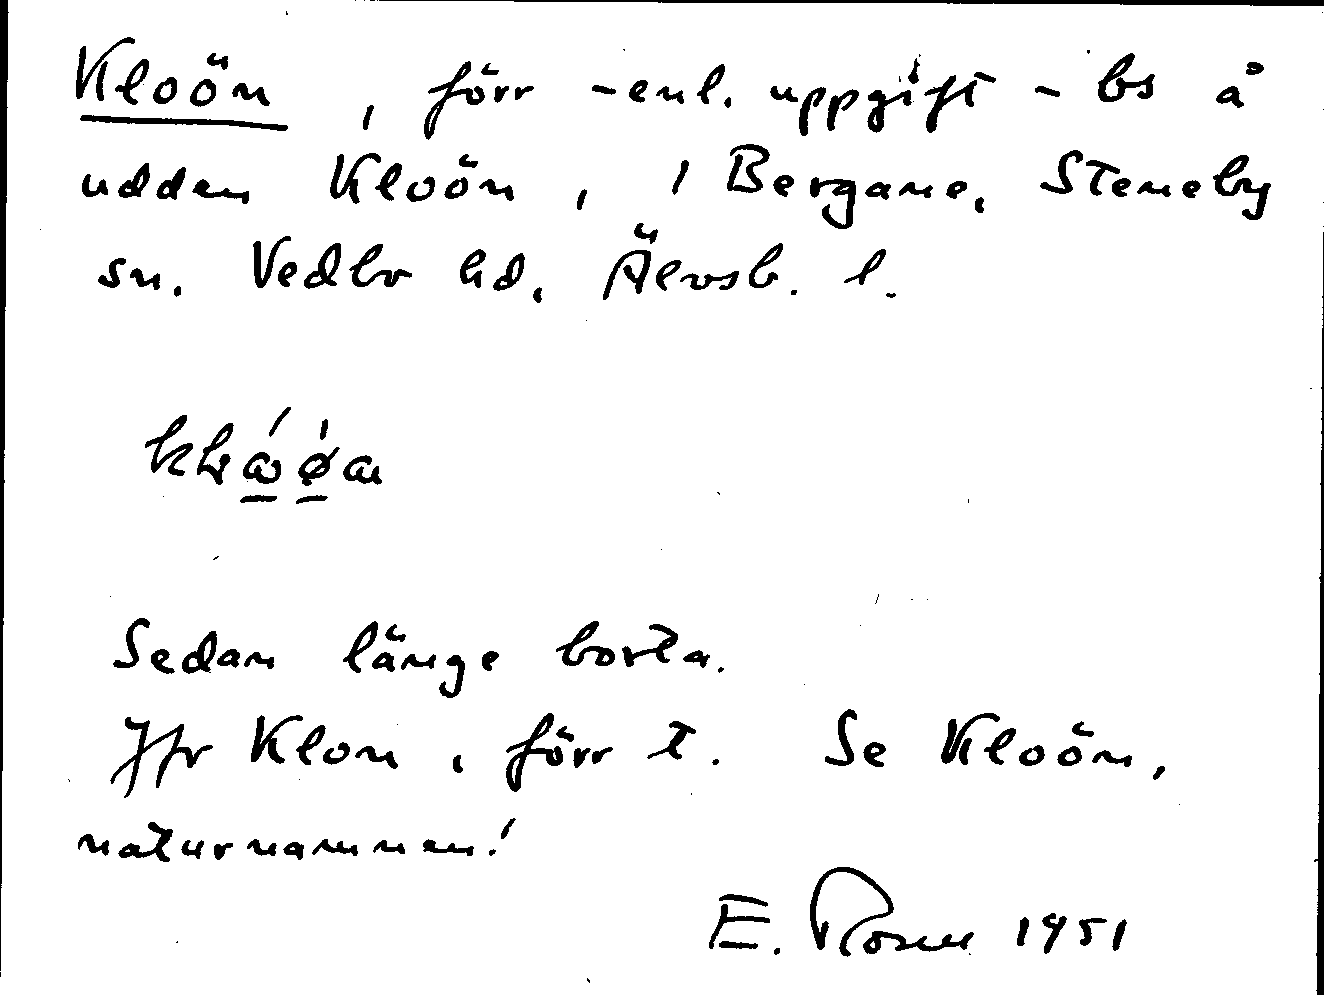 Kloön, förr - enl. uppgift - bs å
udden Kloön, i Bergane, Steneby
sn. Vedbo hd. Älvsb. l.
Sedan länge borta.
Jfr Klon, förr t. Se Kloön,
naturnamnen!
E. Rosen 1951